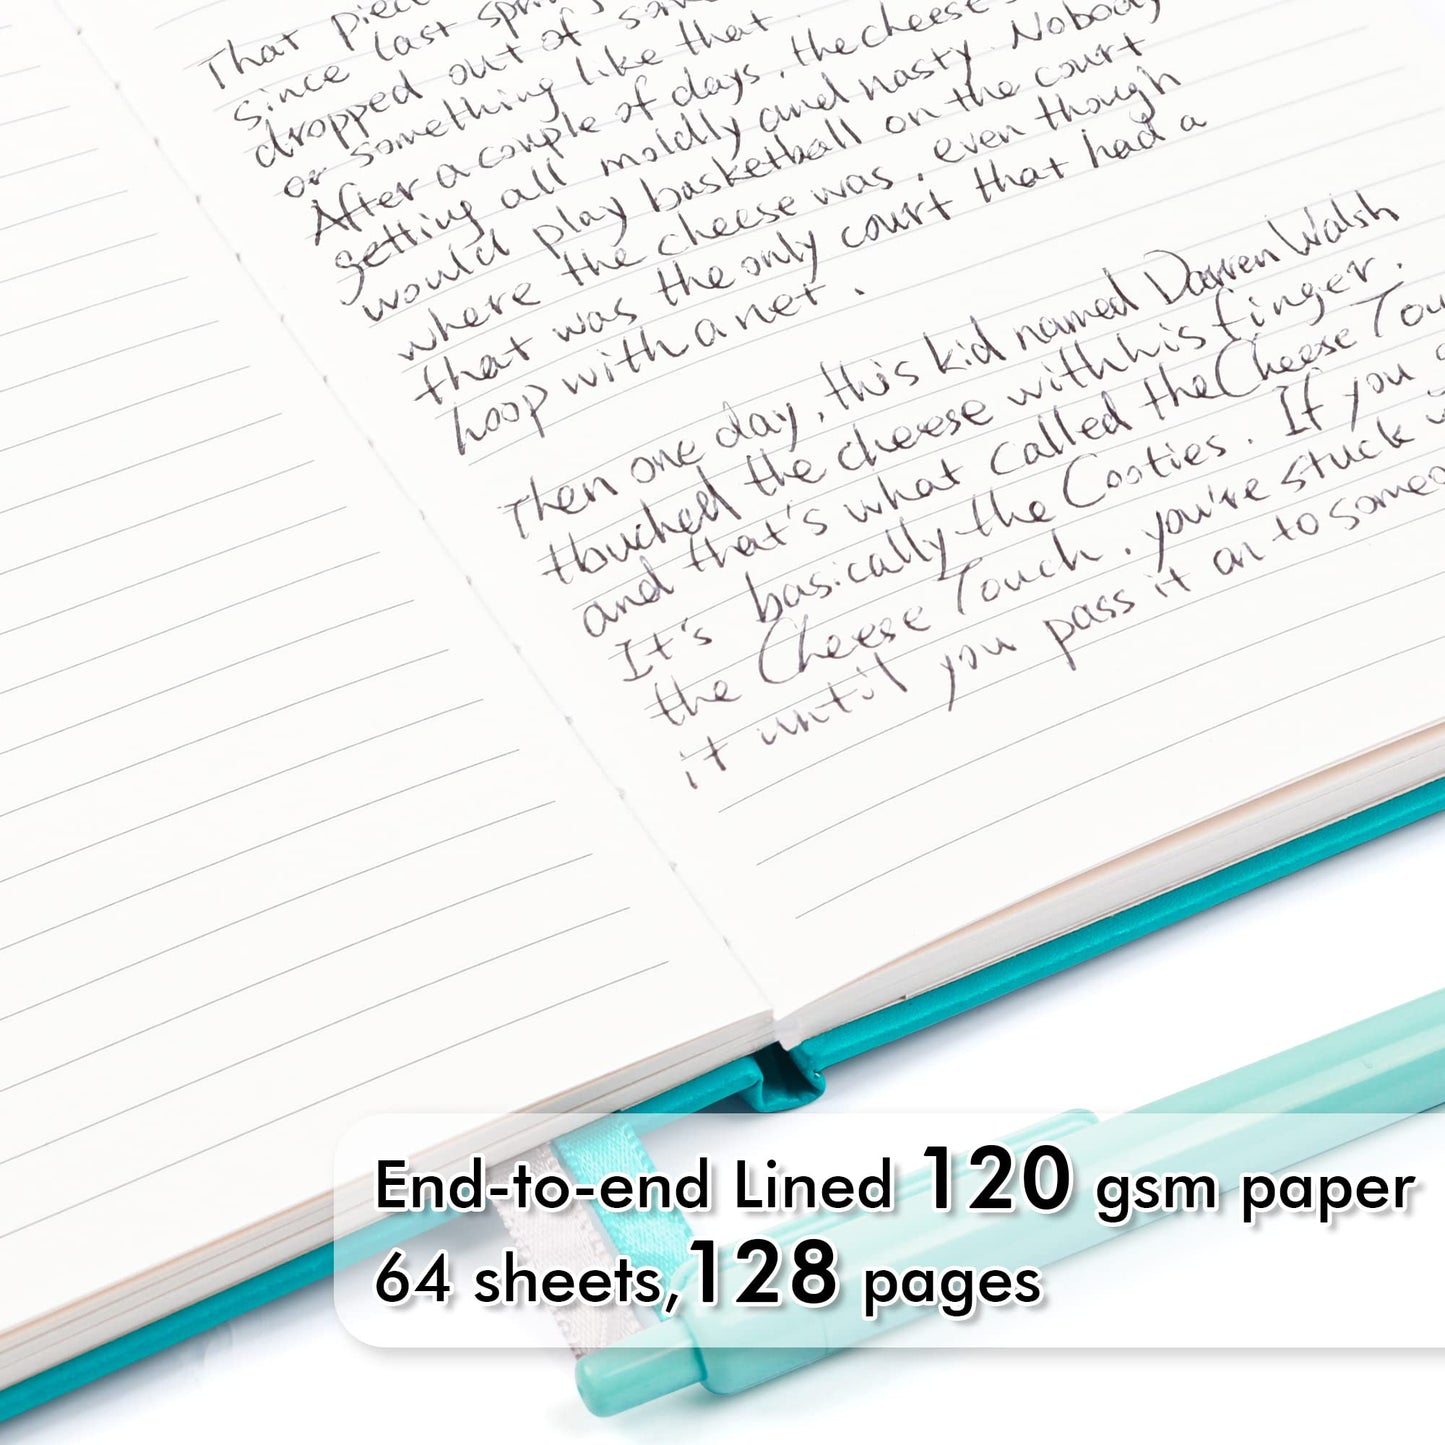 That piec
since last spri
dropped out of
or something like that
After a couple of days, the cheese
getting all moldly and nasty. Nobody
would play basketball on the court
where the cheese was, even though
that was the only court that had a
hoop with a net.
Then one day, this kid named Darren Walsh
touched the cheese with his finger.
and that's what called the Cheese Tou
It's basically the Cooties. If you
the Cheese Touch, you're stuck
it until you pass it on to someo
End-to-end Lined 120 gsm paper
64 sheets,128 pages